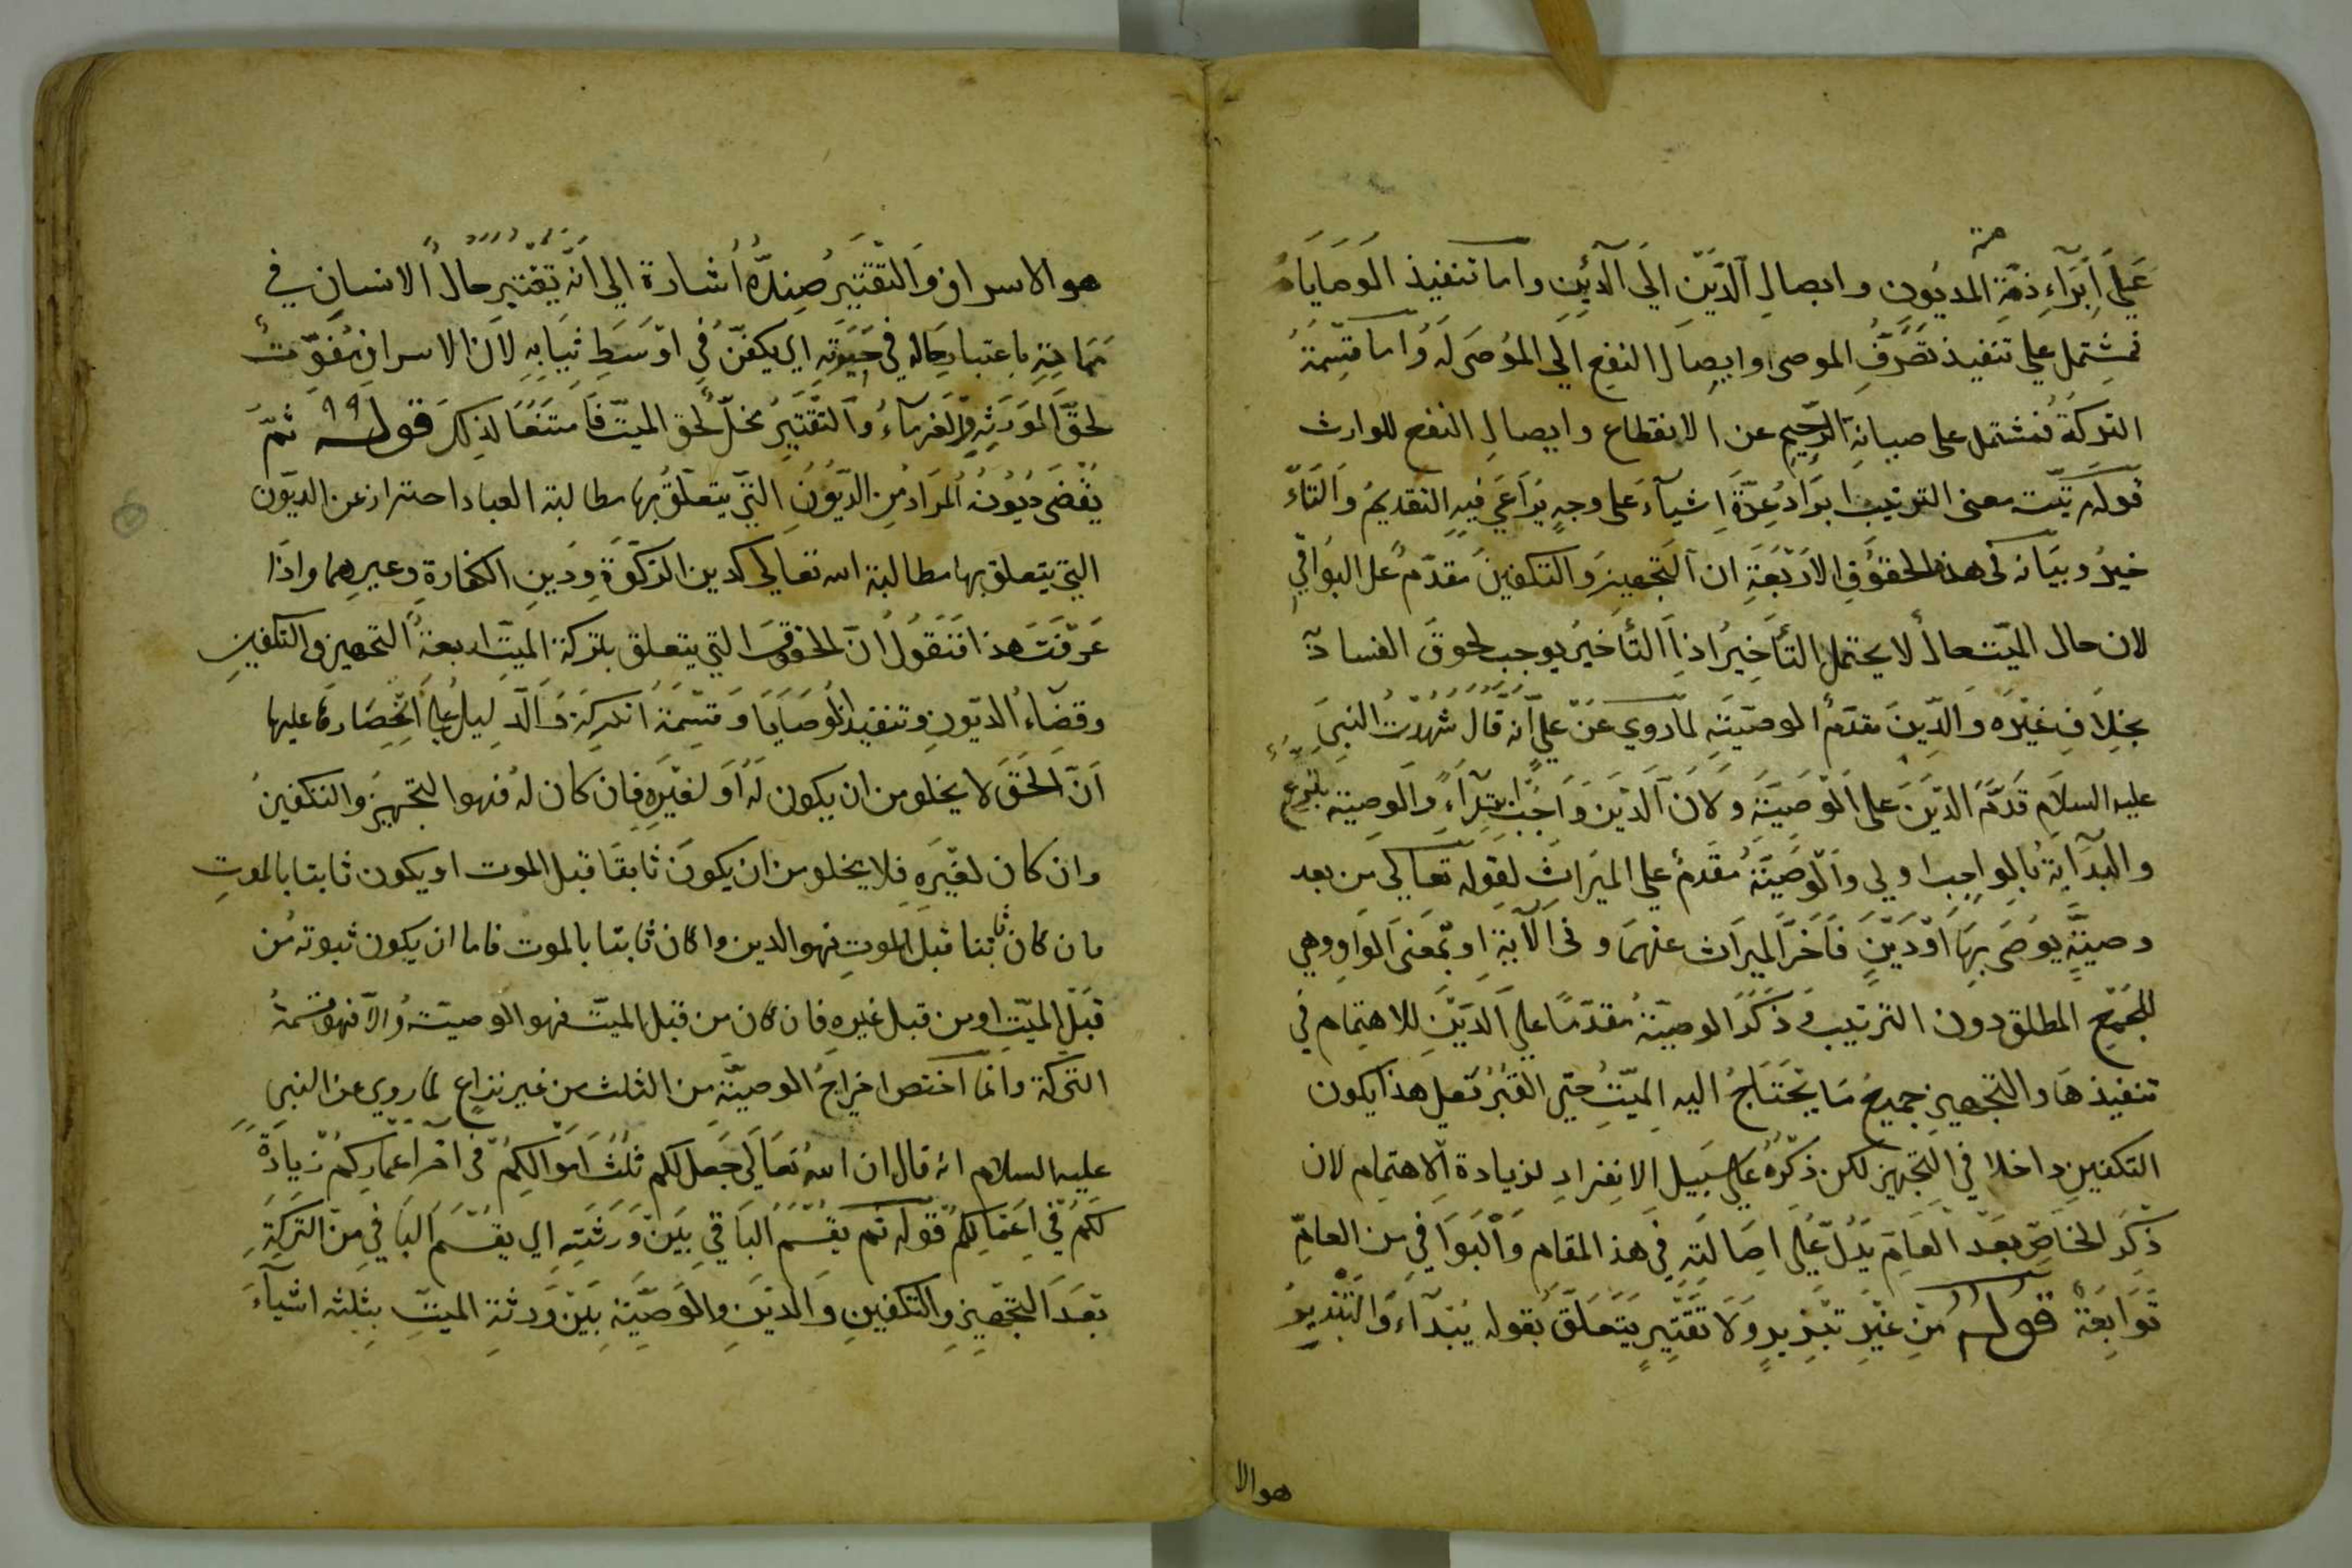 على ابراء ذمة المديون وايصال الدين الى الدائن واما تنفيذ الوصاياه
فمشتمل على تنفيذ تصرف الموصى وايصال النفع الى الموصى له واما قسمة
التركة فمشتمل على صيانة الرحم عن الانقطاع وايصال النفع للوارث
قوله مرتبة معنى الترتيب ايراد عدة اشياء على وجه يراعى فيه التقديم والتا
خير وبيانه فى هذه الحقوق الاربعة ان التجهيز والتكفين مقدم على البواقي
لان حال الميت حال لا يحتمل التأخير اذ التأخير يوجب لحوق الفساد
بخلاف غيره والدين مقدم الوصية لما روي عن علي انه قال شهدت النبي
عليه السلام قدم الدين على الوصية ولان الدين واجب ابتداء والوصية تبرع
والبداية بالواجب اولى والوصية مقدم على الميراث لقوله تعالى من بعد
وصية يوصى بها او دين فاخر الميراث عنهما وفى الآية او بمعنى الواو وهي
للجمع المطلق دون الترتيب وذكر الوصية مقدما على الدين للاهتمام في
تنفيذها والتجهيز جميع ما يحتاج اليه الميت حتى القبر فعلى هذا يكون
التكفين داخلا في التجهيز لكن ذكره على سبيل الانفراد لزيادة الاهتمام لان
ذكر الخاص بعد العام يدل على اصالته في هذا المقام والبواقي من العام
توابعه قوله من غير تبذير ولا تقتير يتعلق بقوله يبداء والتبذير
هوالا
هو الاسراف والتقتير ضده اشارة الى انه يعتبر حال الانسان في
مماته باعتبار حاله في حيوته اي يكفن في اوسط ثيابه لان الاسراف مفوت
لحق الورثة والغرماء والتقتير مخل لحق الميت فامتنعا لذلك قوله ثم
يقضى ديونه المراد من الديون التى يتعلق بها مطالبة العباد احتراز عن الديون
التي يتعلق بها مطالبة الله تعالى كدين الزكوة ودين الكفارة وغيرهما واذا
عرفت هذا فنقول ان الحقوق التي يتعلق بتركة الميت اربعة التجهيز والتكفين
وقضاء الديون وتنفيذ الوصايا وقسمة التركة والدليل على انحصاره عليها
ان الحق لا يخلو من ان يكون له او لغيره فان كان له فهو التجهيز والتكفين
وان كان لغيره فلا يخلو من ان يكون ثابتا قبل الموت او يكون ثابتا بالموت
فان كان ثابتا قبل الموت فهو الدين وا كان ثابتا بالموت فاما ان يكون ثبوته من
قبل الميت او من قبل غيره فان كان من قبل الميت فهو الوصية والا فهو قسمة
التركة وانما اختص اخراج الوصية من الثلث من غير نزاع لما روي عن النبي
عليه السلام انه قال ان الله تعالى جعل لكم ثلث اموالكم فى آخر اعماركم زيادة
لكم في اعمالكم قوله ثم يقسم الباقي بين ورثته اي يقسم الباقي من التركة
بعد التجهيز والتكفين والدين والوصية بين ورثة الميت بثلثه اشياء